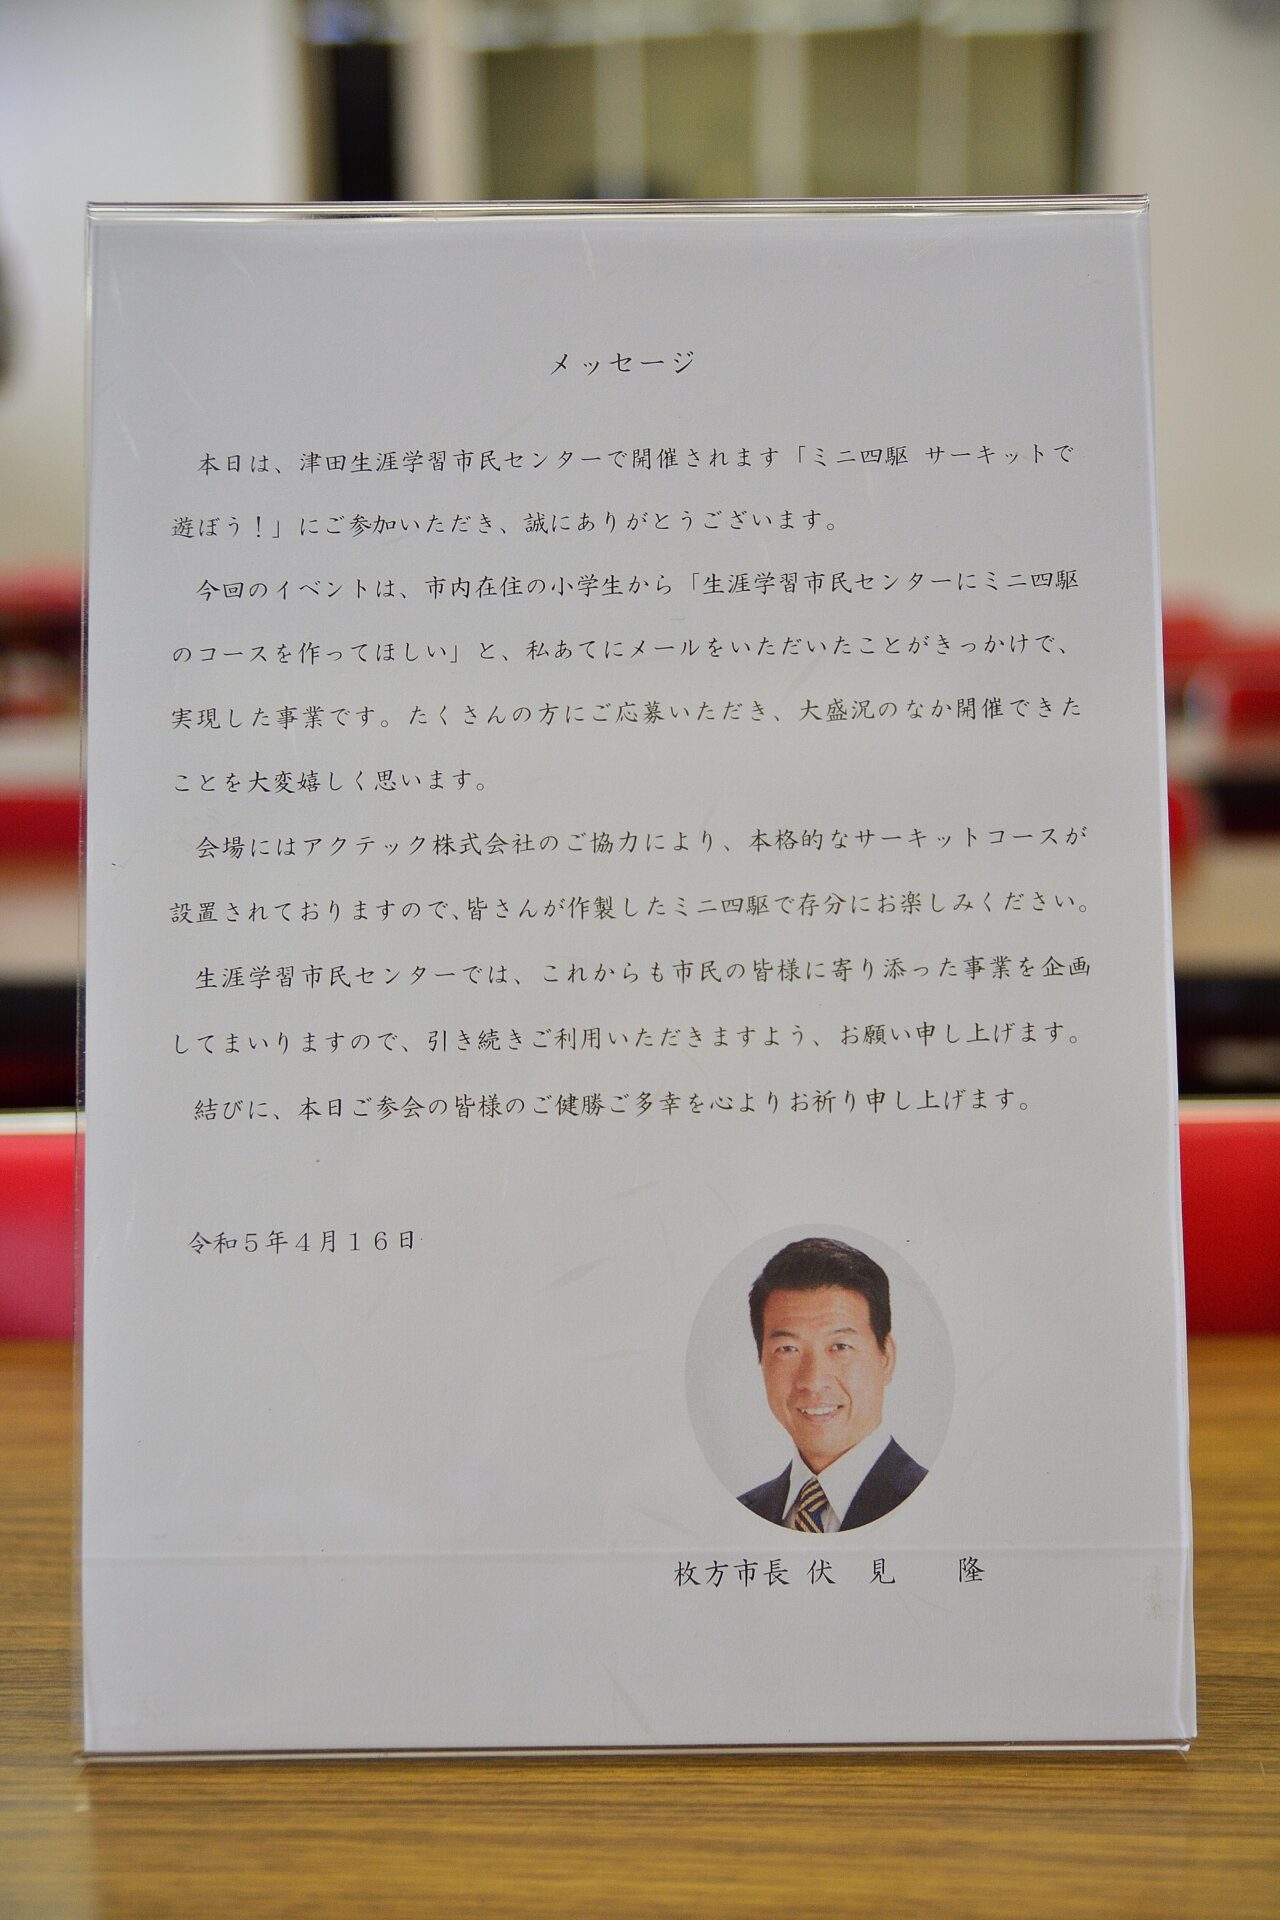 メッセージ
本日は、津田生涯学習市民センターで開催されます「ミニ四駆 サーキットで
遊ぼう！」にご参加いただき、誠にありがとうございます。
今回のイベントは、市内在住の小学生から「生涯学習市民センターにミニ四駆
のコースを作ってほしい」と、私あてにメールをいただいたことがきっかけで、
実現した事業です。たくさんの方にご応募いただき、大盛況のなか開催できた
ことを大変嬉しく思います。
会場にはアクテック株式会社のご協力により、本格的なサーキットコースが
設置されておりますので、皆さんが作製したミニ四駆で存分にお楽しみください。
生涯学習市民センターでは、これからも市民の皆様に寄り添った事業を企画
してまいりますので、引き続きご利用いただきますよう、お願い申し上げます。
結びに、本日ご参会の皆様のご健勝ご多幸を心よりお祈り申し上げます。
令和５年４月１６日
枚方市長 伏　見　　隆